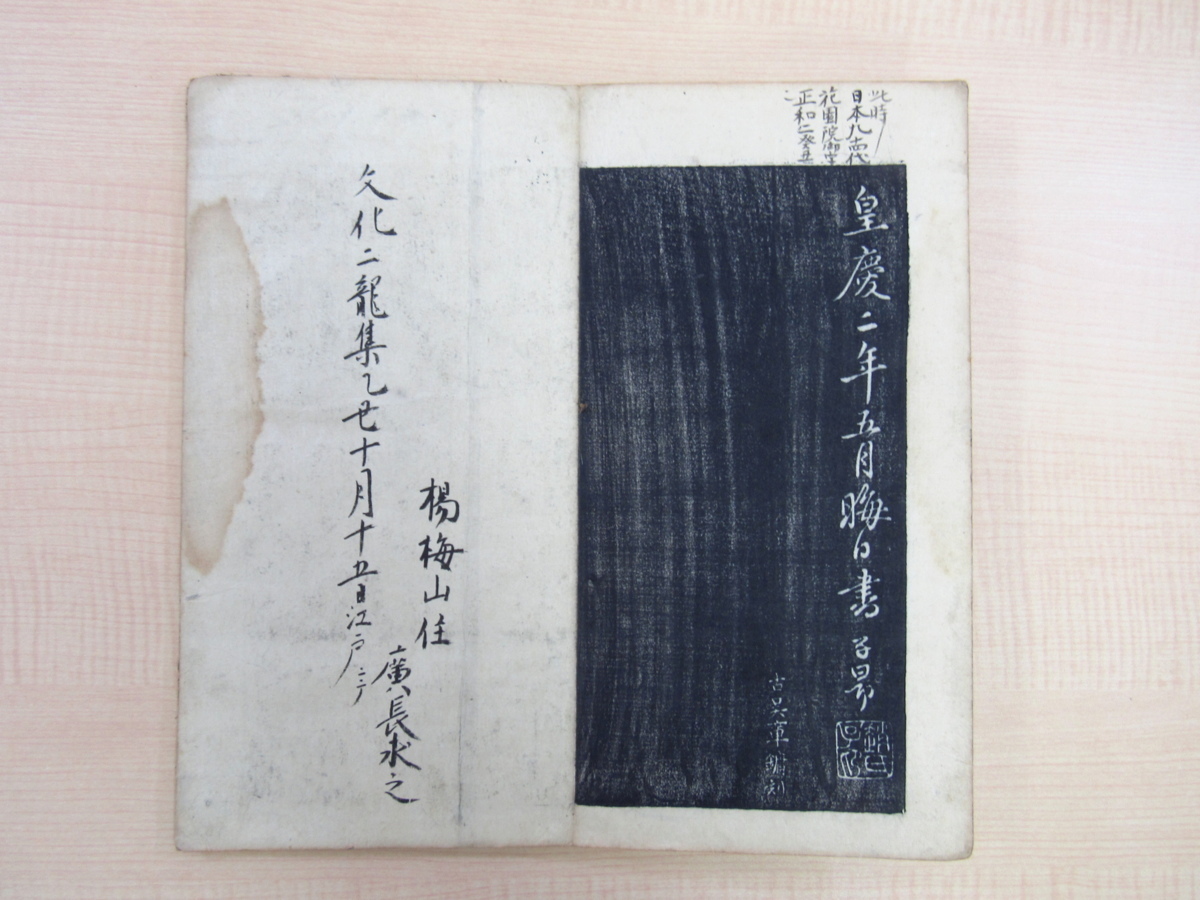 此時
日本九十四代
花園院御宇
正和二癸丑
皇慶二年五月晦日書 子昂
古吳章鏞刻
楊梅山住
廣長求之
文化二龍集乙丑十月十五日江戸ニテ